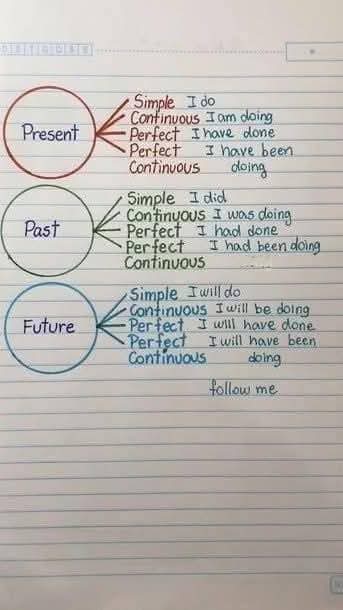 Present
Simple I do
Continuous I am doing
Perfect I have done
Perfect I have been
Continuous doing
Past
Simple I did
Continuous I was doing
Perfect I had done
Perfect I had been doing
Continuous
Future
Simple I will do
Continuous I will be doing
Perfect I will have done
Perfect I will have been
Continuous doing
follow me